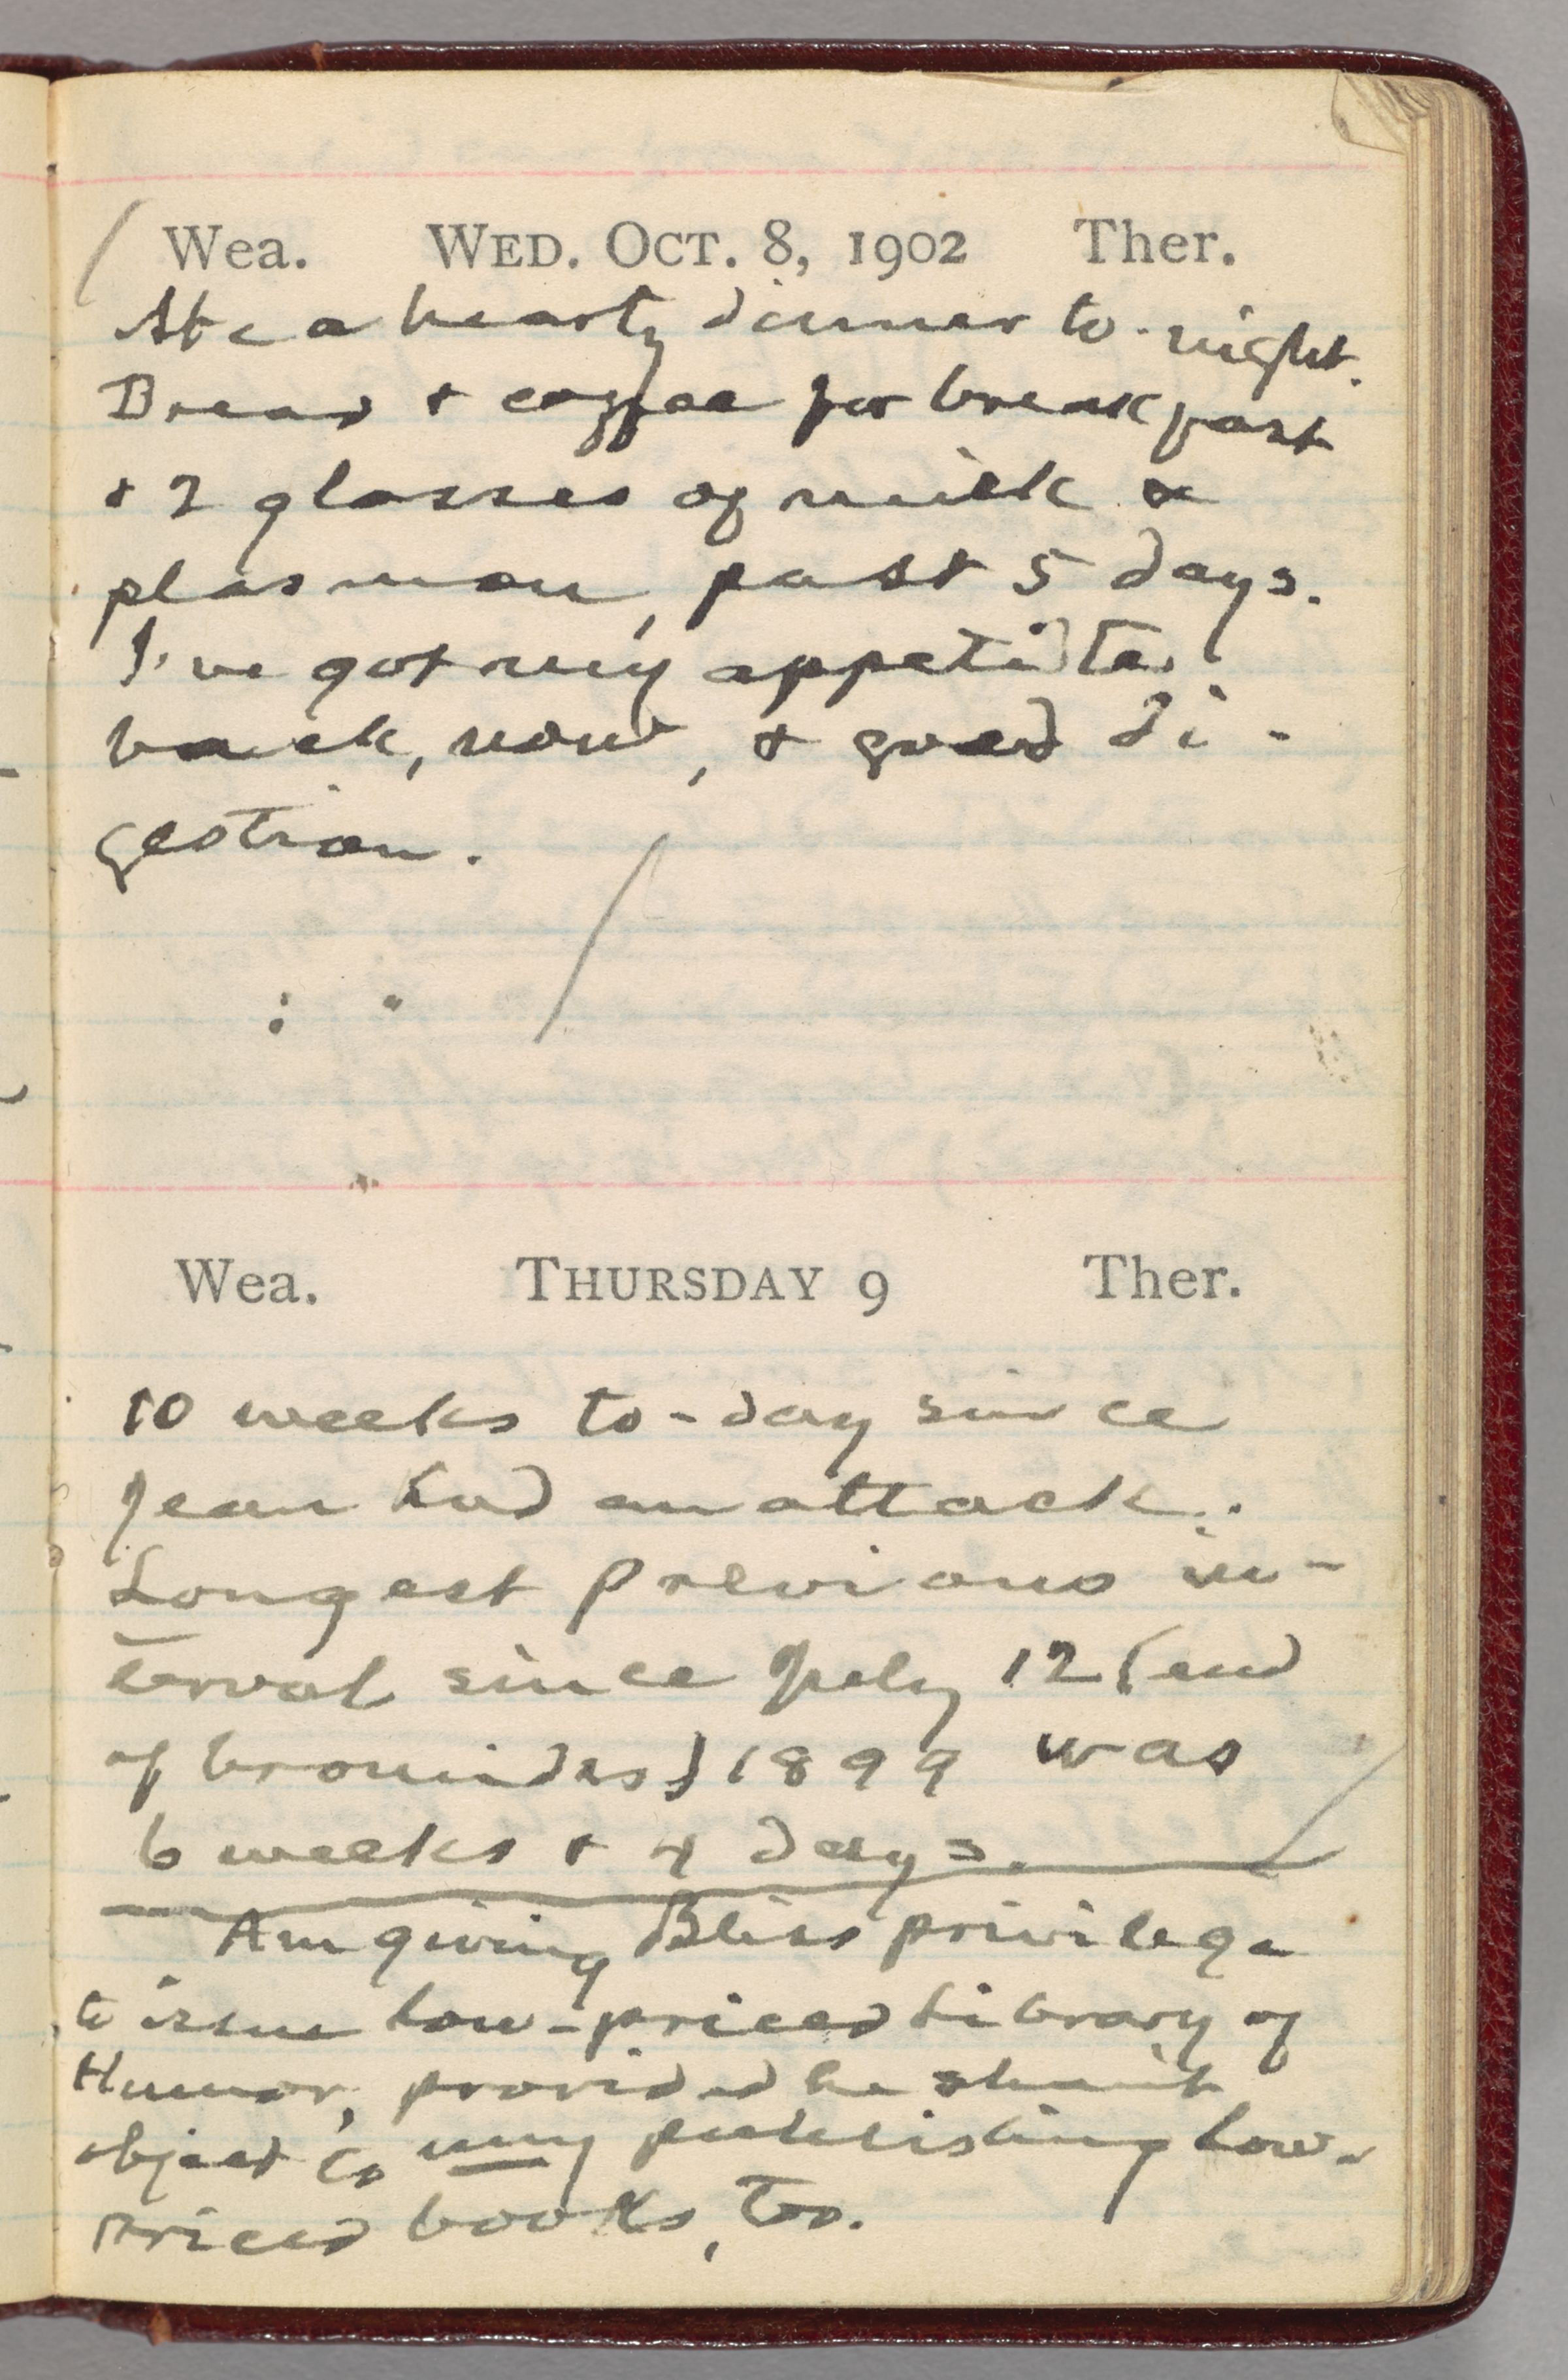 Wea. WED. OCT. 8, 1902 Ther.
Ate a hearty dinner to-night.
Bread & coffee for breakfast
& 2 glasses of milk &
plasmon, past 5 days.
I've got my appetite
back, now, & good di-
gestion.
Wea. THURSDAY 9 Ther.
10 weeks to-day since
Jean had an attack.
Longest previous in-
terval since July 12 (end
of bromides) 1899 was
6 weeks & 4 days.
Am giving Bliss privilege
to issue low-priced Library of
Humor, provided he shan't
object to my publishing low-
priced books, too.